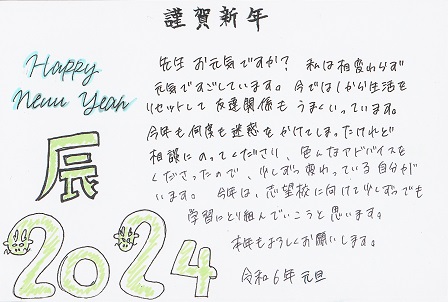 謹賀新年
Happy
New Year
辰
2024
先生 お元気ですか? 私は相変わらず
元気ですごしています。今では1から生活を
リセットして友達関係もうまくいっています。
今年も何度も迷惑をかけてしまったけれど
相談にのってくださり、色んなアドバイスを
くださったので、少しずつ変わっている自分が
います。今年は、志望校に向けて少しずつでも
学習にとり組んでいこうと思います。
本年もよろしくお願いします。
令和6年 元旦